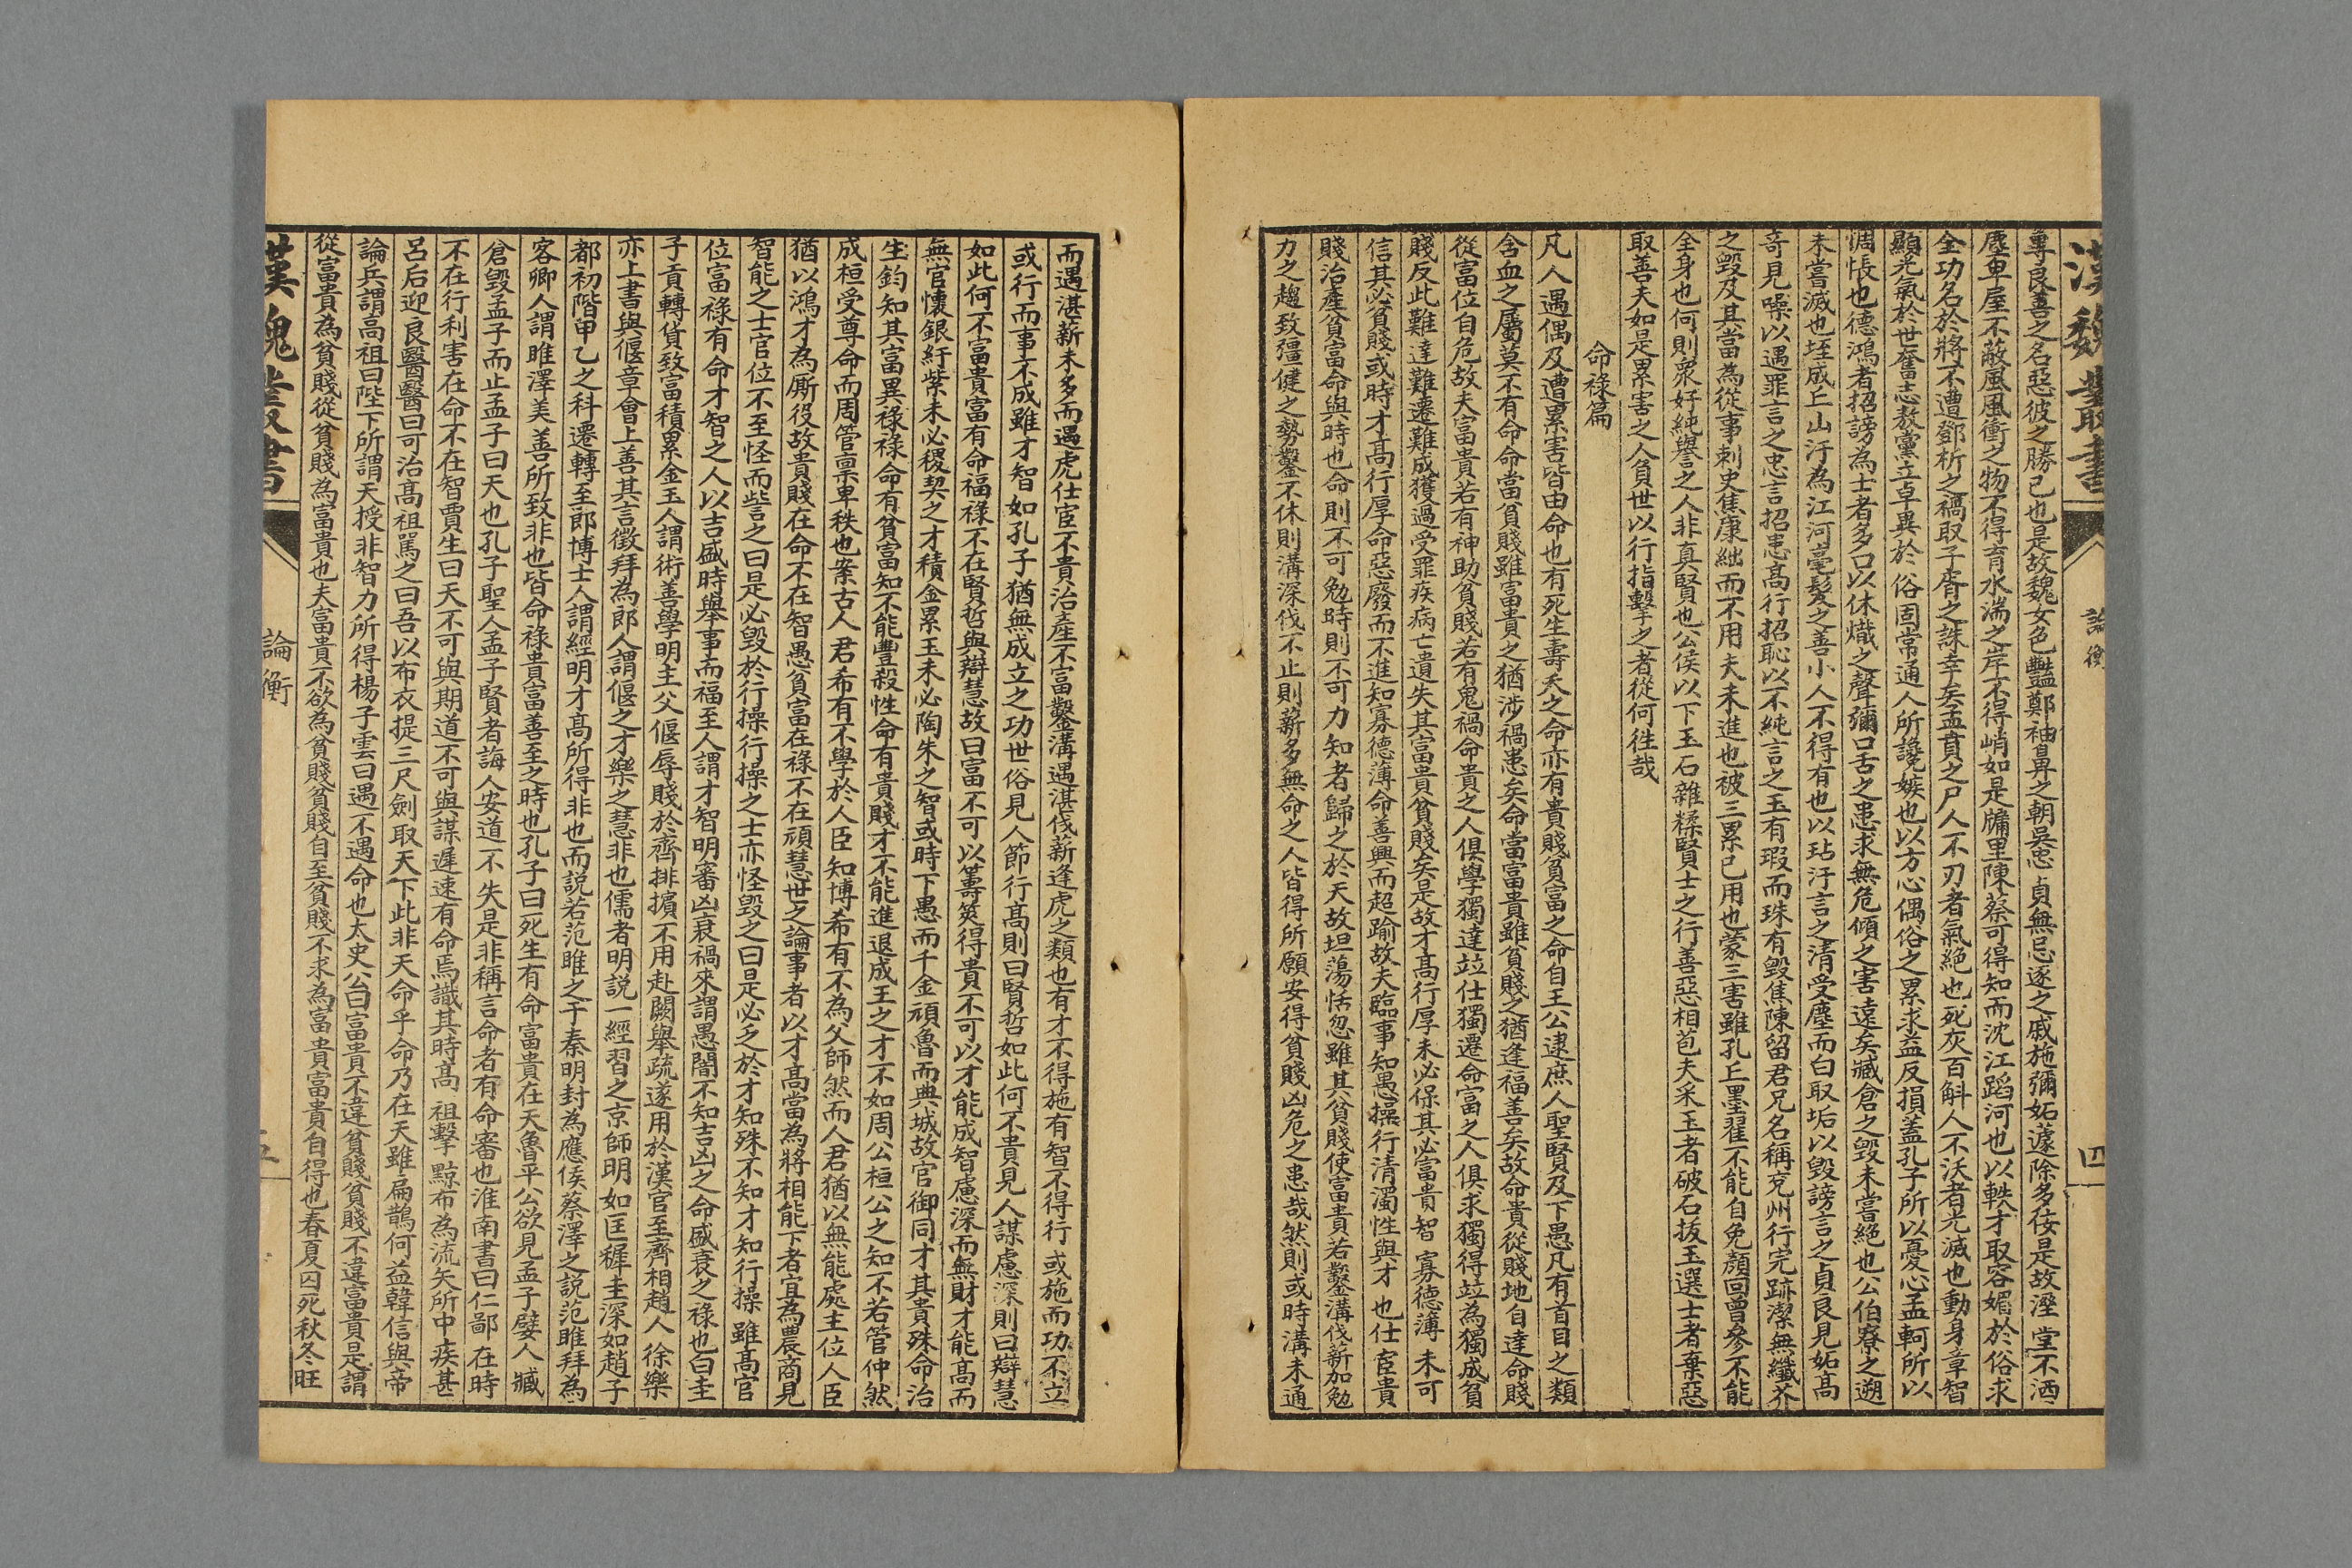 漢魏叢書
論衡
四
尊良善之名惡彼之勝己也是故魏女色豔鄭袖鼻之朝吳忠貞無忌逐之戚施彌妬蘧除多佞是故溼堂不洒
塵卑屋不蔽風風衝之物不得育水湍之岸不得峭如是牖里陳蔡可得知而沈江蹈河也以軼才取容媚於俗求
全功名於將不遭鄧析之禍取子胥之誅幸矣孟賁之尸人不刃者氣絶也死灰百斛人不沃者光滅也動身章智
顯光氣於世奮志敖黨立卓異於俗固常通人所讒嫉也以方心偶俗之累求益反損蓋孔子所以憂心孟軻所以
惆悵也德鴻者招謗為士者多口以休熾之聲彌口舌之患求無危傾之害遠矣臧倉之毀未嘗絶也公伯寮之遡
未嘗滅也垤成丘山汙為江河毫髮之善小人不得有也以玷汙言之清受塵而白取垢以毀謗言之貞良見妬高
奇見噪以遇罪言之忠言招患高行招恥以不純言之玉有瑕而珠有毀焦陳留君兄名稱兗州行完跡潔無纖芥
之毀及其當為從事刺史焦康絀而不用夫未進也被三累已用也蒙三害雖孔丘墨翟不能自免顏回曾參不能
全身也何則衆好純譽之人非真賢也公侯以下玉石雜糅賢士之行善惡相苞夫采玉者破石拔玉選士者棄惡
取善夫如是累害之人負世以行指擊之者從何往哉
命祿篇
凡人遇偶及遭累害皆由命也有死生壽夭之命亦有貴賤貧富之命自王公逮庶人聖賢及下愚凡有首目之類
含血之屬莫不有命命當貧賤雖富貴之猶涉禍患矣命當富貴雖貧賤之猶逢福善矣故命貴從賤地自達命賤
從富位自危故夫富貴若有神助貧賤若有鬼禍命貴之人俱學獨達竝仕獨遷命富之人俱求獨得竝為獨成貧
賤反此難達難遷難成獲過受罪疾病亡遺失其富貴貧賤矣是故才高行厚未必保其必富貴智寡德薄未可
信其必貧賤或時才高行厚命惡廢而不進知寡德薄命善興而超踰故夫臨事知愚操行清濁性與才也仕宦貴
賤治產貧富命與時也命則不可勉時則不可力知者歸之於天故坦蕩恬忽雖其貧賤使富貴若鑿溝伐薪加勉
力之趨致彊健之勢鑿不休則溝深伐不止則薪多無命之人皆得所願安得貧賤凶危之患哉然則或時溝未通
而遇湛薪未多而遇虎仕宦不貴治產不富鑿溝遇湛伐薪逢虎之類也有才不得施有智不得行或施而功不立
或行而事不成雖才智如孔子猶無成立之功世俗見人節行高則曰賢哲如此何不貴見人謀慮深則曰辯慧
如此何不富貴富有命福祿不在賢哲與辯慧故曰富不可以籌筴得貴不可以才能成智慮深而無財才能高而
無官懷銀紆紫未必稷契之才積金累玉未必陶朱之智或時下愚而千金頑魯而典城故官御同才其貴殊命治
生鈞知其富異祿祿命有貧富知不能豐殺性命有貴賤才不能進退成王之才不如周公桓公之知不若管仲然
成桓受尊命而周管禀卑秩也案古人君希有不學於人臣知博希有不為父師然而人君猶以無能處主位人臣
猶以鴻才為厮役故貴賤在命不在智愚貧富在祿不在頑慧世之論事者以才高當為將相能下者宜為農商見
智能之士官位不至怪而訾之曰是必毀於行操行操之士亦怪毀之曰是必乏於才知殊不知才知行操雖高官
位富祿有命才智之人以吉盛時舉事而福至人謂才智明審凶衰禍來謂愚闇不知吉凶之命盛衰之祿也白圭
子貢轉貨致富積累金玉人謂術善學明主父偃辱賤於齊排擯不用赴闕舉疏遂用於漢官至齊相趙人徐樂
亦上書與偃章會上善其言徵拜為郎人謂偃之才樂之慧非也儒者明說一經習之京師明如匡稺圭深如趙子
都初階甲乙之科遷轉至郎博士人謂經明才高所得非也而說若范雎之干秦明封為應侯蔡澤之說范雎拜為
客卿人謂雎澤美善所致非也皆命祿貴富善至之時也孔子曰死生有命富貴在天魯平公欲見孟子嬖人臧
倉毀孟子而止孟子曰天也孔子聖人孟子賢者誨人安道不失是非稱言命者有命審也淮南書曰仁鄙在時
不在行利害在命不在智賈生曰天不可與期道不可與謀遲速有命焉識其時高祖擊黥布為流矢所中疾甚
呂后迎良醫醫曰可治高祖罵之曰吾以布衣提三尺劍取天下此非天命乎命乃在天雖扁鵲何益韓信與帝
論兵謂高祖曰陛下所謂天授非智力所得楊子雲曰遇不遇命也太史公曰富貴不違貧賤貧賤不違富貴是謂
從富貴為貧賤從貧賤為富貴也夫富貴不欲為貧賤貧賤自至貧賤不求為富貴富貴自得也春夏囚死秋冬旺
漢魏叢書
論衡
五